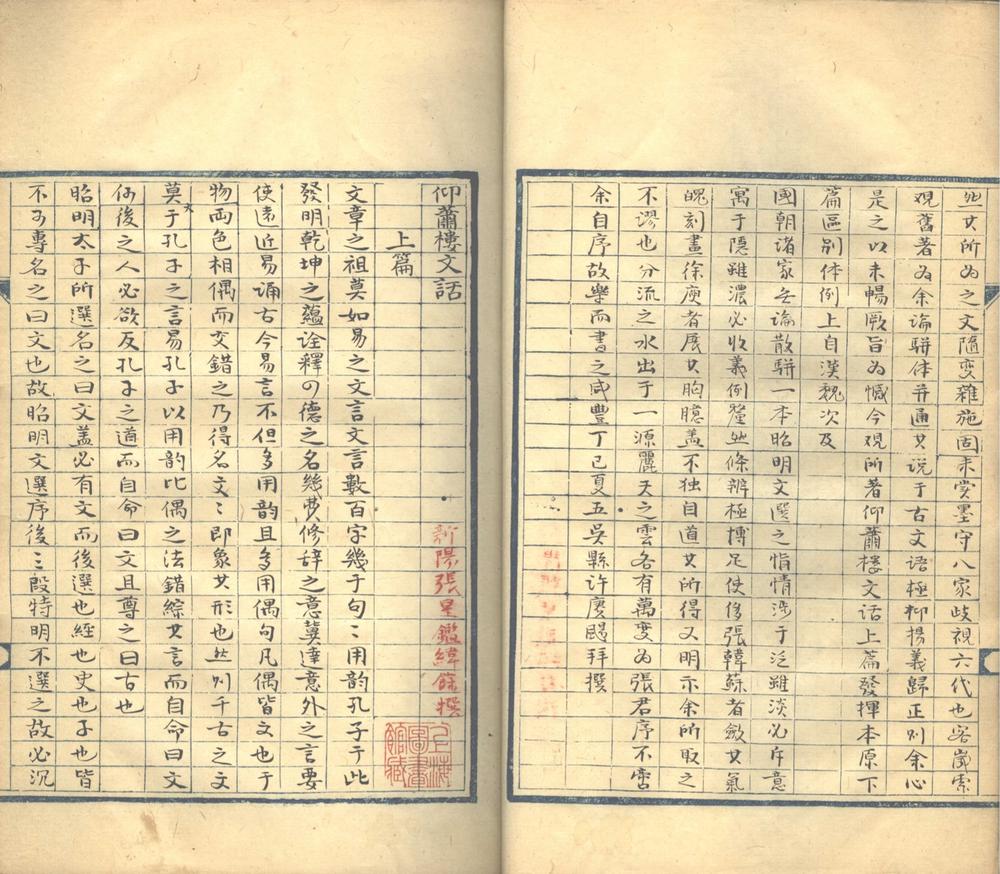 此其所为之文隨变雜施固未嘗墨守八家歧視六代也客崴索
观舊著为余论駢体并通其说于古文语極抑揚義歸正则余心
是之以未暢厥旨为憾今观所著仰蕭樓文话上篇發揮本原下
篇區别体例上自漢魏次及
國朝诸家无论散駢一本昭明文選之恉情涉于泛雖淡必斥意
寓于隐雖濃必收義例釐然條辨極博足使侈張韓蘇者斂其氣
魄刻畫徐庾者展其胸臆盖不独自道其所得又明示余所取之
不謬也分流之水出于一源麗天之雲各有萬变为張君序不啻
余自序故樂而書之咸豐丁巳夏五吴縣许賡颺拜撰
仰蕭樓文話
上篇
新陽張星鑑緯餘撰
文章之祖莫如易之文言文言數百字幾于句〻用韵孔子于此
發明乾坤之蘊诠釋四德之名幾费修辞之意冀達意外之言要
使遠近易诵古今易言不但多用韵且多用偶句凡偶皆文也于
物两色相偶而交錯之乃得名文〻即象其形也然则千古之文
莫大于孔子之言易孔子以用韵比偶之法錯綜其言而自命曰文
何後之人必欲反孔子之道而自命曰文且尊之曰古也
昭明太子所選名之曰文盖必有文而後選也經也史也子也皆
不可專名之曰文也故昭明文選序後三段特明不選之故必沉
上海圖書館藏